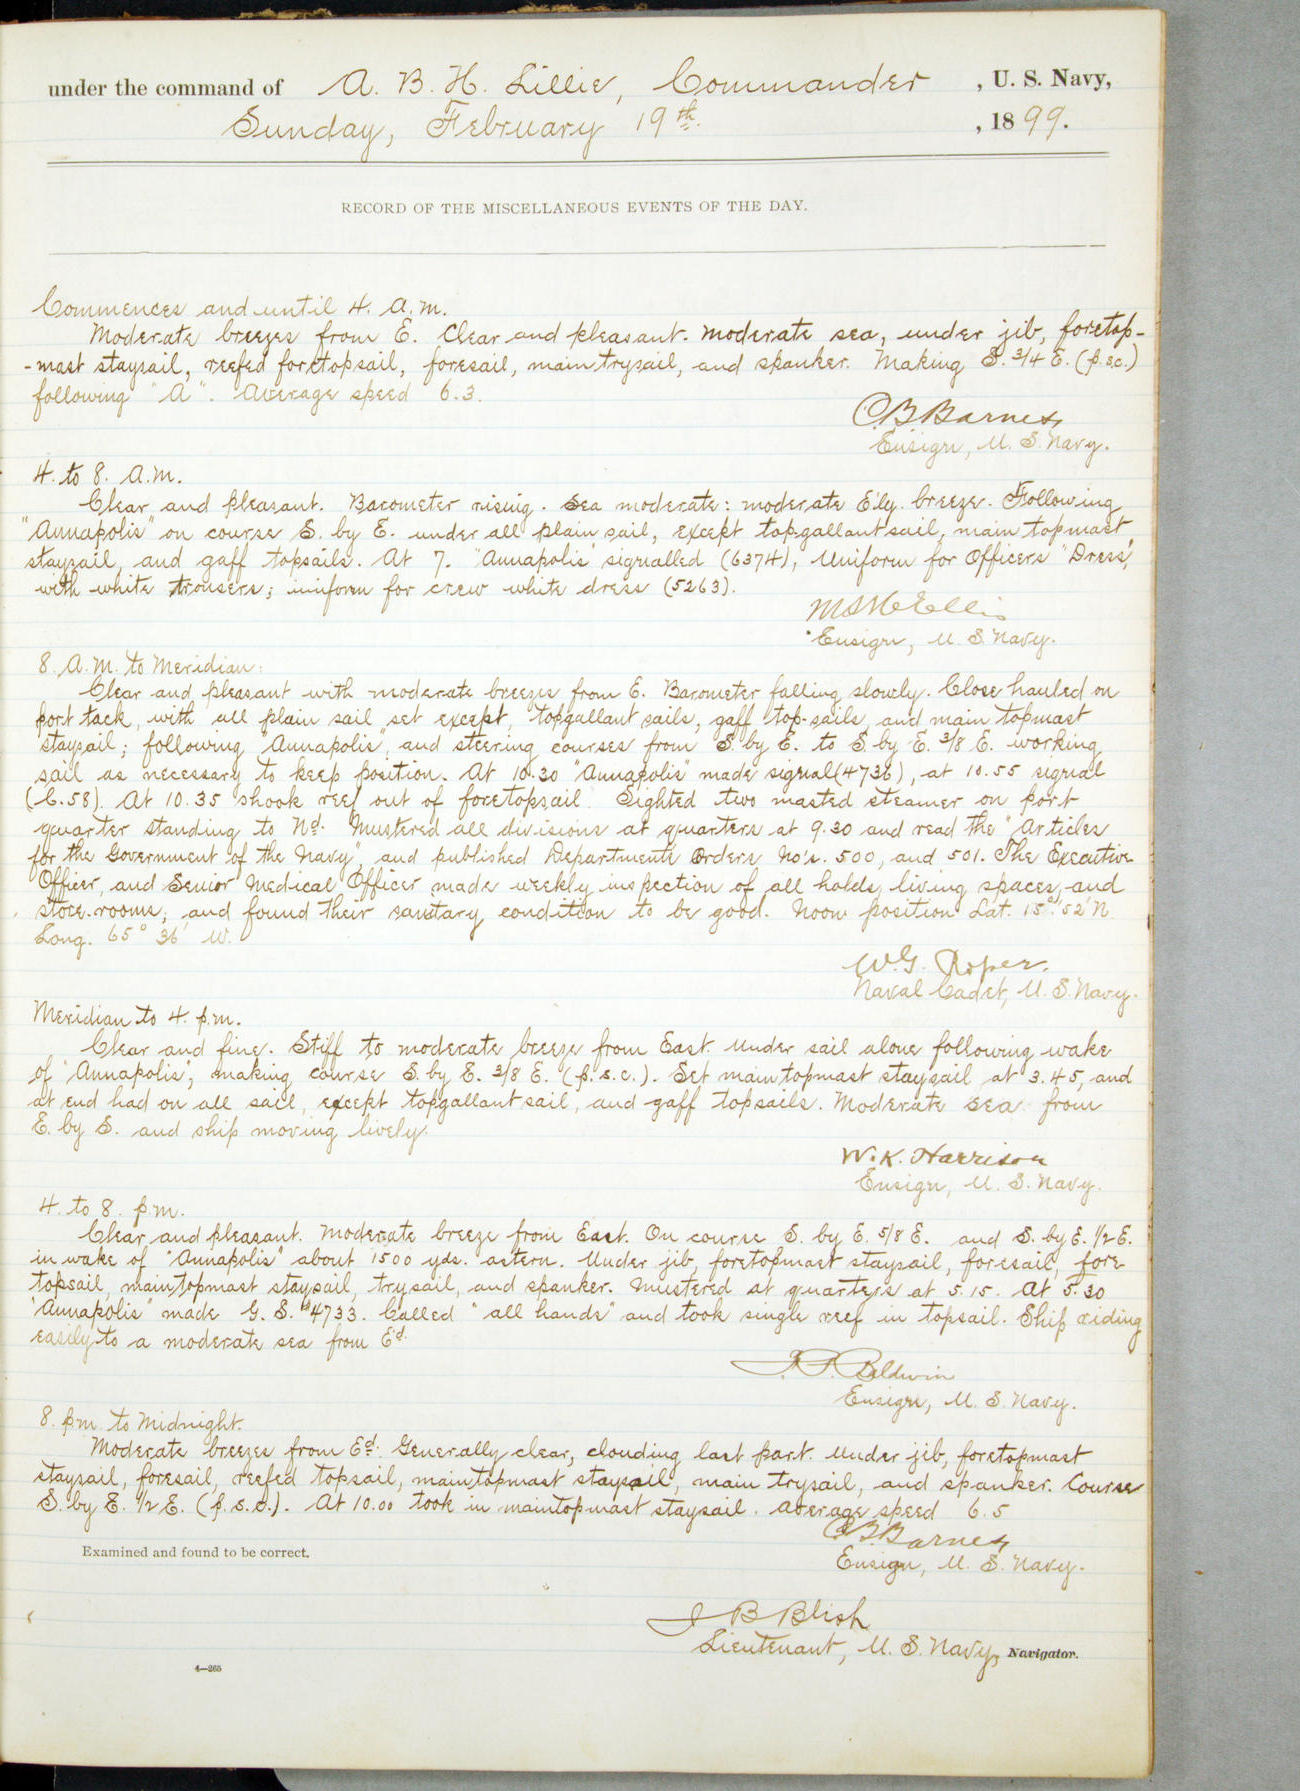 under the command of A. B. H. Lillie, Commander , U. S. Navy,
Sunday, February 19th. , 1899.
RECORD OF THE MISCELLANEOUS EVENTS OF THE DAY.
Commences and until 4. A.M.
Moderate breezes from E. Clear and pleasant. Moderate sea, under jib, foretop-
-mast staysail, reefed foretopsail, foresail, main trysail, and spanker. Making S. 3/4 E. (p.s.c.)
following "A". Average speed 6.3.
C.B. Barnes,
Ensign, U. S. Navy.
4. to 8. A.M.
Clear and pleasant. Barometer rising. Sea moderate: moderate E'ly. breeze. Following
"Annapolis" on course S. by E. under all plain sail, except top-gallant sail, main topmast
staysail, and gaff topsails. At 7. "Annapolis" signalled (6374), Uniform for Officers "Dress",
with white trousers; uniform for crew white dress (5263).
Ensign, U. S. Navy.
8. A.M. to Meridian:
Clear and pleasant with moderate breezes from E. Barometer falling slowly. Close hauled on
port tack, with all plain sail set except, topgallant sails, gaff top-sails, and main topmast
staysail; following "Annapolis", and steering courses from S. by E. to S. by E. 3/8 E. working
sail as necessary to keep position. At 10.30 "Annapolis" made signal (4736), at 10.55 signal
(C.58). At 10.35 shook reef out of foretopsail. Sighted two masted steamer on port
quarter standing to Nd. Mustered all divisions at quarters at 9.30 and read the "Articles
for the Government of the Navy", and published Departments Orders No's. 500, and 501. The Executive
Officer, and Senior Medical Officer made weekly inspection of all holds, living spaces, and
store-rooms, and found their sanitary condition to be good. Noon position Lat. 15° 52' N
Long. 65° 36' W.
W.G. Roper.
Naval Cadet, U. S. Navy.
Meridian to 4. p.m.
Clear and fine. Stiff to moderate breeze from East. Under sail alone following wake
of "Annapolis", making course S. by E. 3/8 E. (p.s.c.). Set main topmast staysail at 3.45, and
at end had on all sail, except topgallant sail, and gaff topsails. Moderate sea from
E. by S. and ship moving lively.
W. K. Harrison
Ensign, U. S. Navy.
4. to 8. p.m.
Clear and pleasant. Moderate breeze from East. On course S. by E. 5/8 E. and S. by E. 1/2 E.
in wake of "Annapolis" about 1500 yds. astern. Under jib, foretopmast staysail, foresail, fore
topsail, main topmast staysail, trysail, and spanker. Mustered at quarters at 5.15. At 5.30
"Annapolis" made G. S. #4733. Called "all hands" and took single reef in topsail. Ship riding
easily to a moderate sea from E'd.
Baldwin
Ensign, U. S. Navy.
8. p.m. to Midnight.
Moderate breezes from Ed. Generally clear, clouding last part. Under jib, foretopmast
staysail, foresail, reefed topsail, main topmast staysail, main trysail, and spanker. Course
S. by E. 1/2 E. (p.s.c.). At 10.00 took in maintopmast staysail. Average speed 6.5
C.B. Barnes,
Ensign, U. S. Navy.
Examined and found to be correct.
J B Blish
Lieutenant, U. S. Navy, Navigator.
4—265